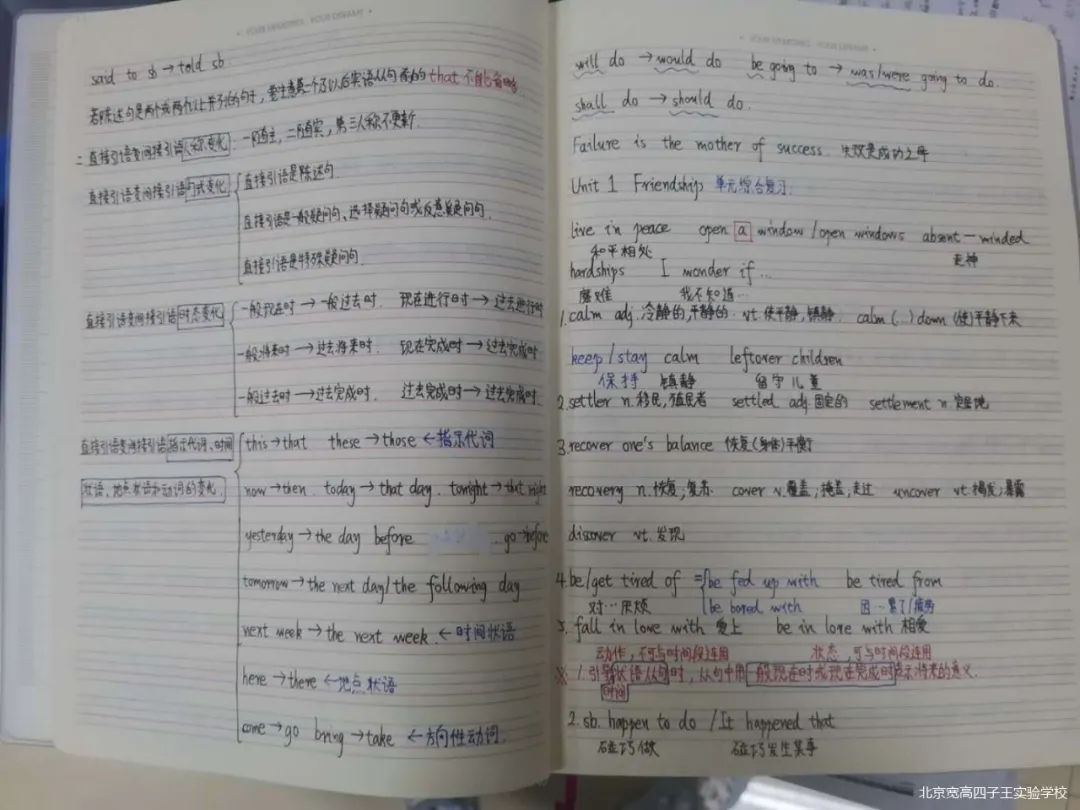 YOUR MEMORIES · YOUR DREAMS
said to sb → told sb.
若陈述句是两个或两个以上并列的句子,要注意第二个及以后宾语从句前的that不能省略.
二.直接引语变间接引语人称变化:一随主,二随宾,第三人称不更新.
直接引语变间接引语句式变化
直接引语是陈述句.
直接引语是一般疑问句、选择疑问句或反意疑问句.
直接引语是特殊疑问句.
直接引语变间接引语时态变化
一般现在时→一般过去时. 现在进行时→过去进行时
一般将来时→过去将来时. 现在完成时→过去完成时
一般过去时→过去完成时. 过去完成时→过去完成时.
直接引语变间接引语指示代词、时间
状语、地点状语和动词的变化.
this→that these→those ←指示代词
now→then. today→that day. tonight→that night
yesterday→the day before ...go→before
tomorrow→the next day/the following day
next week→the next week. ←时间状语
here→there ←地点状语
come→go bring→take ←方向性动词.
YOUR MEMORIES · YOUR DREAMS
will do →would do be going to →was/were going to do.
shall do →should do.
Failure is the mother of success. 失败是成功之母
Unit 1 Friendship 单元综合复习.
live in peace open a window/open windows absent-minded
和平相处 走神
hardships I wonder if...
磨难 我不知道…
1.calm adj.冷静的,平静的. vt.使平静,镇静. calm(...)down (使)平静下来
keep/stay calm leftover children
保持 镇静 留守儿童
2.settler n.移民,殖民者 settled adj.固定的 settlement n.定居地
3.recover one's balance 恢复(身体)平衡
recovery n.恢复,复苏. cover v.覆盖;掩盖;走过 uncover vt.揭发;暴露
discover vt.发现
4.be/get tired of = be fed up with be tired from
对…厌烦 be bored with 因…累了/疲劳
5.fall in love with 爱上 be in love with 相爱
动作,不可与时间段连用 状态,可与时间段连用
※1.引导状语从句时,从句中用一般现在时或现在完成时表示将来的意义.
时间
2.sb. happen to do /It happened that
碰巧做 碰巧发生某事
北京宽高四子王实验学校